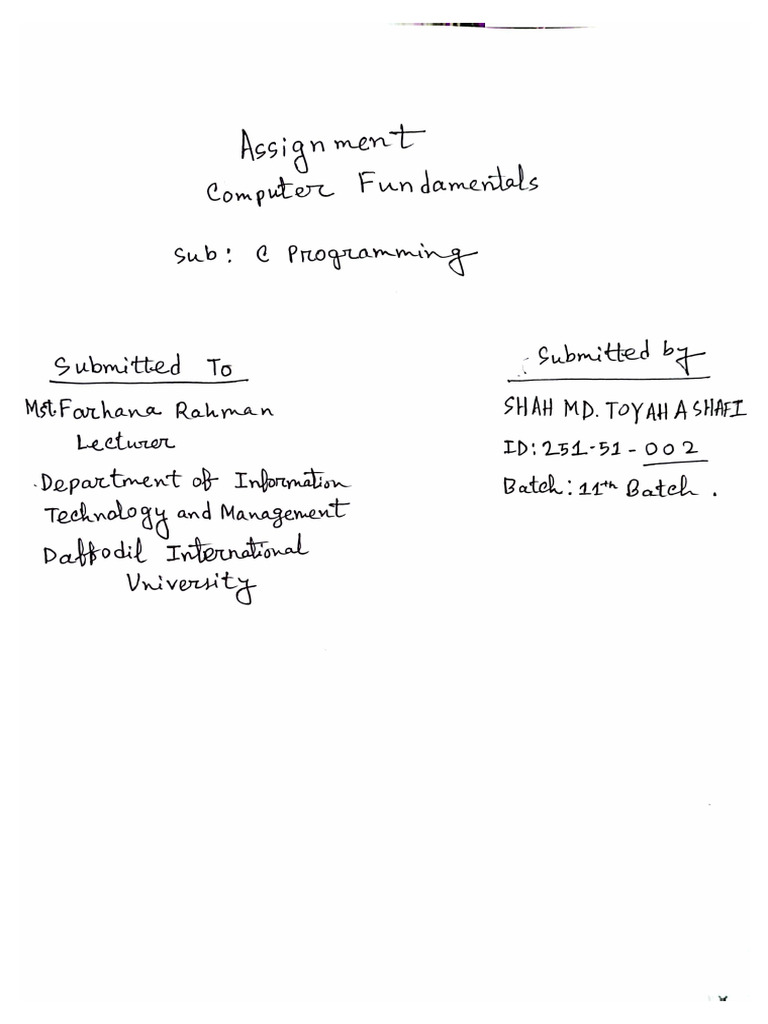 Assignment
Computer Fundamentals
Sub: C Programming
Submitted To
Mst. Farhana Rahman
Lecturer
Department of Information
Technology and Management
Daffodil International
University
Submitted by
SHAH MD. TOYAHA SHAFI
ID: 251-51-002
Batch: 11th Batch.